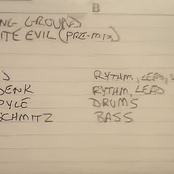 B
NG GROUND
ITE EVIL (PRE-MIX)
RYTHM, LEAD, V
DENK RYTHM, LEAD
OYLE DRUMS
SCHMITZ BASS